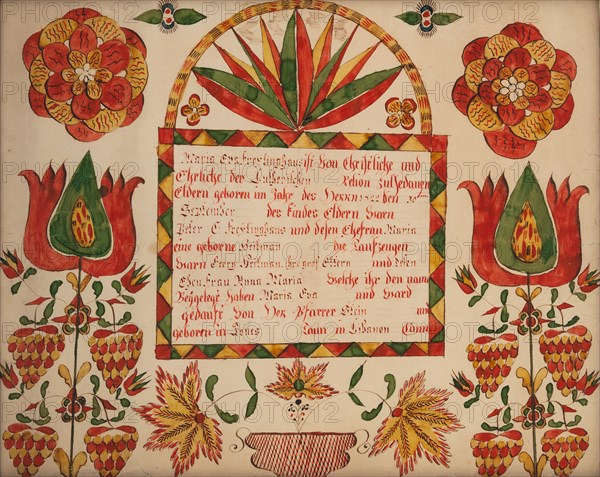 Maria Eva Freylinghaus ist Von Christliche und
Ehrliche der Lutherischen Zugedanen
Eldern geboren im Jahr des HERRN den
September des Kindes Eldern Waren
Peter C. Freylinghaus und desen Ehefrau Maria
eine geborne die Taufzeugen
Warn Georg und desen
Ehenfrau Anna Maria Welche ihr den nam
Beygelegt haben Maria Eva und Ward
gedauft Von Der Pfarrer Stein und
geboren in Taun in Libanon